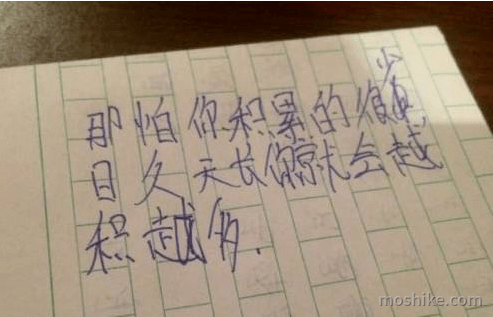 那怕你积累的很少
日久天长你就会越
积越多.
moshike.com